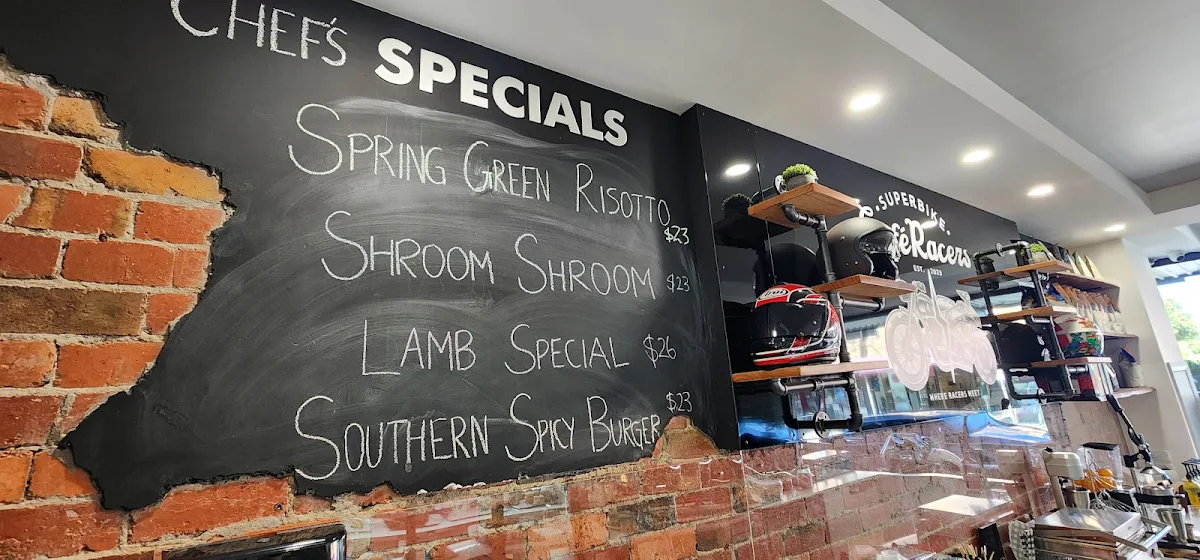 CHEF'S SPECIALS
SPRING GREEN RISOTTO
$23
SHROOM SHROOM $23
LAMB SPECIAL $26
SOUTHERN SPICY BURGER
$23
SUPERBIKE
féRacers
EST. 2023
WHERE RACERS MEET
Arai